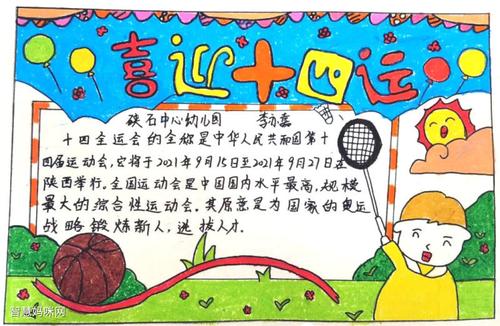 喜迎十四运
硖石中心幼儿园 李小嘉
十四全运会的全称是中华人民共和国第十
四届运动会,它将于2021年9月15日至2021年9月27日在
陕西举行。全国运动会是中国国内水平最高,规模
最大的综合性运动会。其原意是为国家的奥运
战略锻炼新人,选拔人才.
智慧妈咪网